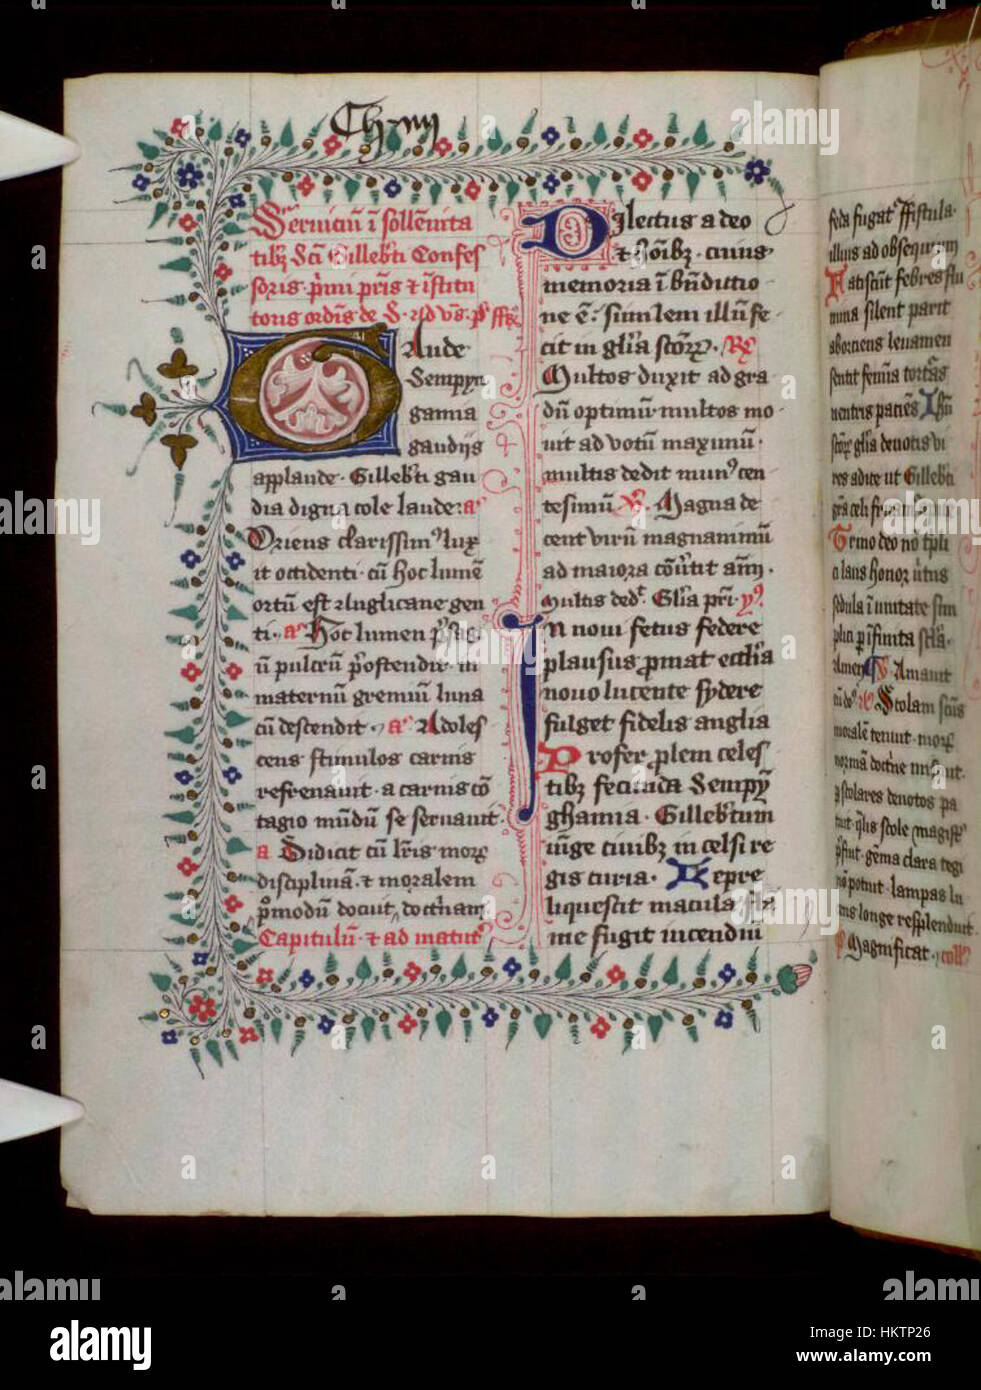 Seruiciũ ĩ sollẽnita
tibꝫ Sci Gilleb'ti Confes
soris · p'mi pr̃is ⁊ ĩstitu
toris ordĩs de S ·
Gaude
Sempyn
gamia
gaudijs
applaude · Gilleb'ti gau
dia digna cole laude : a
Oriens clarissim' lux
it occidenti · cũ hoc lumẽ
ortũ est Anglicane gen
ti · a Hoc lumen p'sagi
ũ pulcrũ p'ostendit · in
maternũ gremiũ luna
cũ descendit · a Adoles
cens stimulos carnis
refrenauit · a carnis cõ
tagio mũdũ se seruauit ·
a Didicit cũ lr̃is morꝫ
disciplinã · ⁊ moralem
p'modũ docuit doct'nam
Capitulũ · ⁊ ad matut'
Dilectus a deo
⁊ hoĩbꝫ · cuius
memoria ĩ bñdictio
ne ẽ : similem illũ fe
cit in gl'ia sc̃orꝫ · R̃
Multos duxit ad gra
dũ optimũ · multos mo
uit ad votũ maximũ ·
multis dedit mun' cen
tesimũ V̓ · Magna de
cent virũ magnanimũ
ad maiora cõu'tit aĩm ·
Multis ded' · Gl'ia p̃ri · y'
In noui fetus federe
plausus p'mat eccl'ia
nouo lucente sydere
fulget fidelis anglia
Profer p'lem celes
tibꝫ fecunda Sempỹ
ghamia · Gilleb'tum
iũge ciuibꝫ in celsi re
gis curia · Repre
liquescit macula
me fugit incendiũ
feda fugat' ffistula ·
illius ad obsequium
Fatiscũt febres flu
mina silent parit
aborriens leuamen
sentit femĩa tortas
uentris paciẽs Ihũ
gl'ia deuotis vi
res adice ut Gilleb'ti
Trino deo nõ
laus honor
sedula ĩ unitate sim
plici p' ĩfinita
Amen V̓ Amauit
eũ dẽ' R̃ Stolam
moralẽ tenuit · morꝫ
normã doct'ne
scolares deuotos pa
uit
gẽma clara tegi
nõ potuit · lampas lu
cens longe resplenduit
Magnificat · coll'
alamy
a
Image ID: HKTP26
www.alamy.com